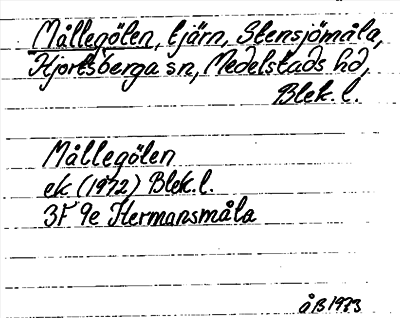 Mållegölen, tjärn, Stensjömåla,
Hjortsberga sn, Medelstads hd,
Blek. l.
Mållegölen
ek (1972) Blek. l.
3F 9e Hermansmåla
ÅB 1973